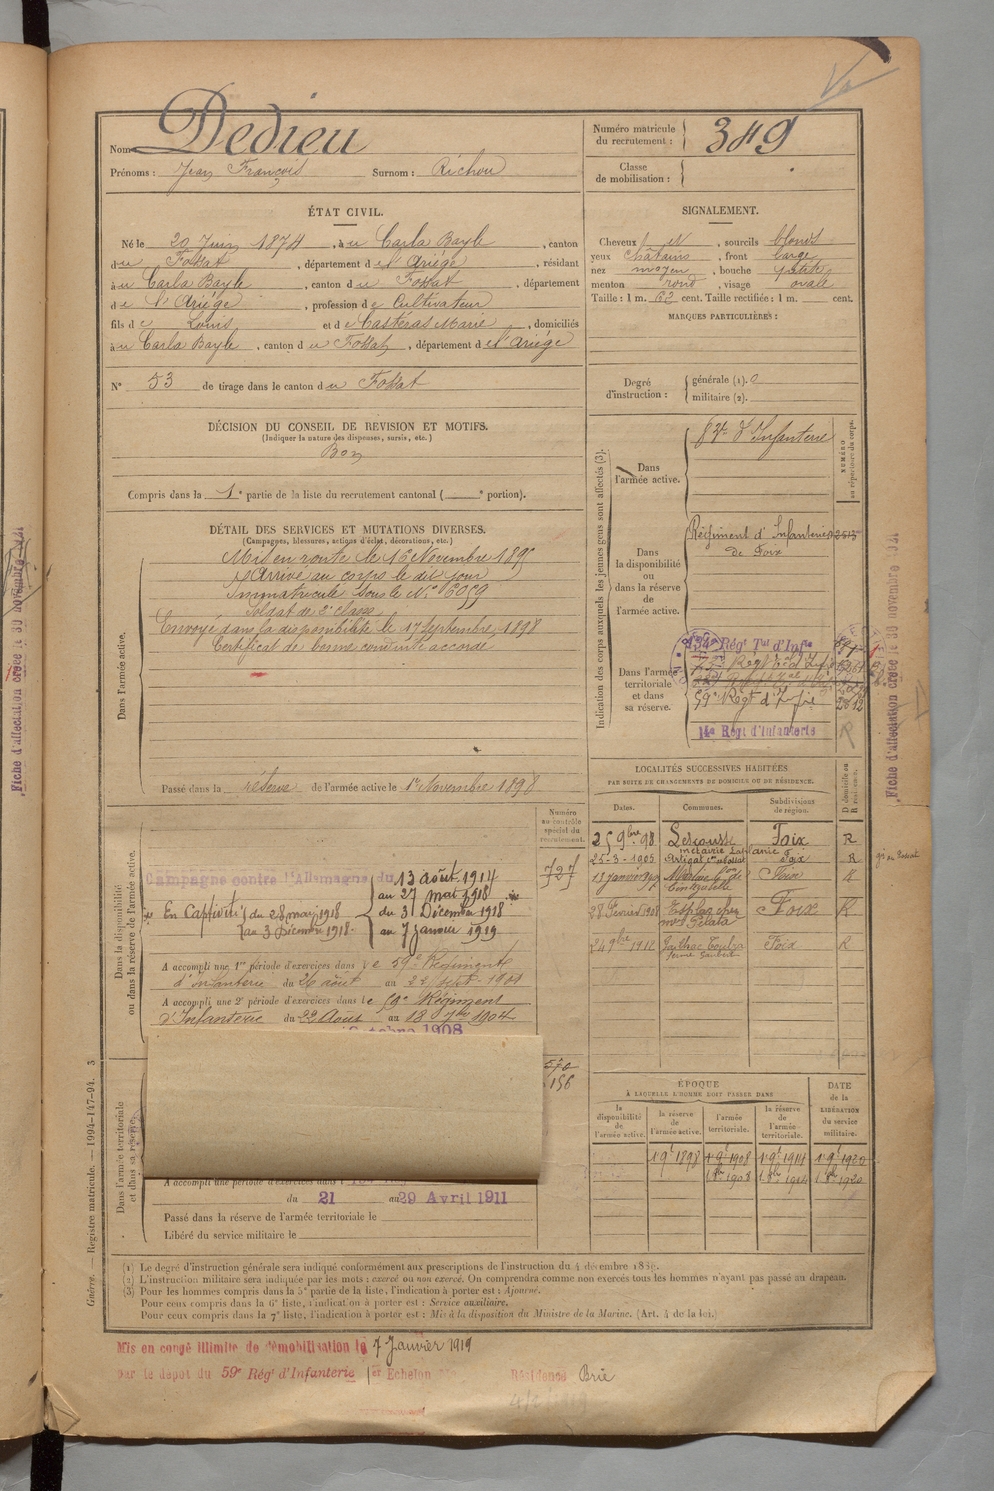 Nom Dedieu
Prénoms : Jean François Surnom : Richou
Numéro matricule
du recrutement : 349
Classe
de mobilisation :
ÉTAT CIVIL.
Né le 20 Juin 1874, à u Carla Bayle, canton
du Fossat, département de l'Ariége, résidant
à u Carla Bayle, canton du Fossat, département
de l'Ariége, profession de Cultivateur
fils de Louis et de Castéras Marie, domiciliés
à u Carla Bayle, canton du Fossat, département de l'Ariége
N° 53 de tirage dans le canton du Fossat
DÉCISION DU CONSEIL DE REVISION ET MOTIFS.
(Indiquer la nature des dispenses, sursis, etc.)
Bon
Compris dans la 1e partie de la liste du recrutement cantonal ( e portion).
SIGNALEMENT.
Cheveux, sourcils blonds
yeux châtains, front large
nez moyen, bouche petite
menton rond, visage ovale
Taille : 1 m. 62 cent. Taille rectifiée : 1 m. cent.
MARQUES PARTICULIÈRES :
Degré
d'instruction :
générale (1).
militaire (2).
DÉTAIL DES SERVICES ET MUTATIONS DIVERSES.
(Campagnes, blessures, actions d'éclat, décorations, etc.)
Dans l'armée active.
Mis en route le 16 Novembre 1895
Arrivé au corps le dit jour
Immatriculé sous le N° 6059
Soldat de 2e classe
Envoyé dans la disponibilité le 17 Septembre 1898
Certificat de bonne conduite accordé
Passé dans la réserve de l'armée active le 1er Novembre 1898
Indication des corps auxquels les jeunes gens sont affectés (3).
Dans
l'armée active.
d'Infanterie
NUMÉRO
au répertoire du corps.
Dans
la disponibilité
ou
dans la réserve
de
l'armée active.
Régiment d'Infanterie
de Foix
Dans l'armée
territoriale
et dans
sa réserve.
134e Régt Tal d'Infie
59e Régt d'Infie
14e Régt d'Infanterie
Fiche d'affectation créée le 30 novembre
Fiche d'affectation créée le 30 novembre
LOCALITÉS SUCCESSIVES HABITÉES
PAR SUITE DE CHANGEMENTS DE DOMICILE OU DE RÉSIDENCE.
Dates.
Communes.
Subdivisions
de région.
D domicile ou
R résidence.
25 9bre 98 Lescousse Foix R
25-3-1905 Artigat Foix R
Foix R
28 Février 1908 Esplas chez Foix R
Foix R
Dans la disponibilité
ou dans la réserve de l'armée active.
Numéro
au contrôle
spécial du
recrutement.
727
Campagne contre l'Allemagne du 13 août 1914
au 27 mai 1918
En Captivité du 28 mai 1918 du 3 Décembre 1918
au 3 Décembre 1918 au 7 janvier 1919
A accompli une 1re période d'exercices dans le 59e Régiment
d'Infanterie du 26 août au 22 sept. 1901
A accompli une 2e période d'exercices dans le 59e Régiment
d'Infanterie du 22 Août au 18 7bre 1904
Octobre 1908
570
156
Dans l'armée territoriale
et dans sa réserve.
A accompli une période d'exercices dans l
du 21 au 29 Avril 1911
Passé dans la réserve de l'armée territoriale le
Libéré du service militaire le
ÉPOQUE
À LAQUELLE L'HOMME DOIT PASSER DANS
DATE
de la
LIBÉRATION
du service
militaire.
la
disponibilité
de
l'armée active.
la réserve
de
l'armée active.
l'armée
territoriale.
la réserve
de
l'armée
territoriale.
1 9e 1898 1 9e 1908 1 9e 1914 1 9e 1920
1 8bre 1908 1 8bre 1914 1 8bre 1920
(1) Le degré d'instruction générale sera indiqué conformément aux prescriptions de l'instruction du 4 décembre 1889.
(2) L'instruction militaire sera indiquée par les mots : exercé ou non exercé. On comprendra comme non exercés tous les hommes n'ayant pas passé au drapeau.
(3) Pour les hommes compris dans la 5e partie de la liste, l'indication à porter est : Ajourné.
Pour ceux compris dans la 6e liste, l'indication à porter est : Service auxiliaire.
Pour ceux compris dans la 7e liste, l'indication à porter est : Mis à la disposition du Ministre de la Marine. (Art. 4 de la loi.)
Guerre. — Registre matricule. — 1994-147-94. 3
Mis en congé illimité de démobilisation le 7 Janvier 1919
par le dépôt du 59e Régt d'Infanterie 1er Echelon
Résidence Brie